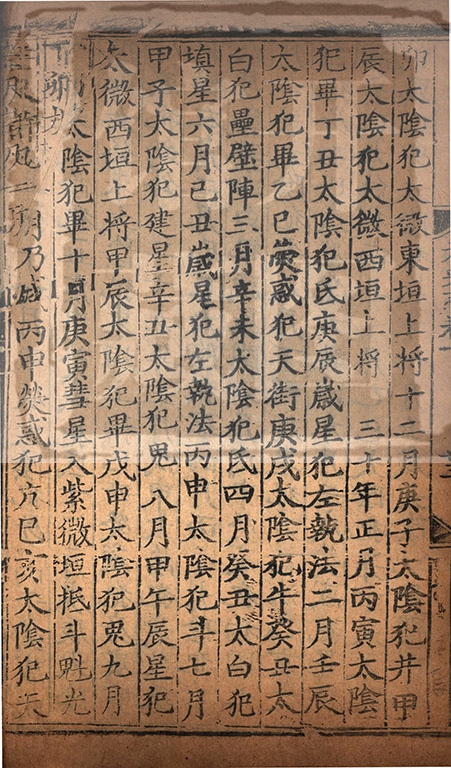 卯太陰犯太微東垣上將十二月庚子太陰犯井甲
辰太陰犯太微西垣上將　三十年正月丙寅太陰
犯畢丁丑太陰犯氐庚辰歲星犯左執法二月壬辰
太陰犯畢乙巳熒惑犯天街庚戌太陰犯牛癸丑太
白犯壘壁陣三月辛未太陰犯氐四月癸丑太白犯
填星六月己丑歲星犯左執法丙申太陰犯斗七月
甲子太陰犯建星辛丑太陰犯鬼八月甲午辰星犯
太微西垣上將甲辰太陰犯畢戊申太陰犯鬼九月
卯太陰犯畢十月庚寅彗星入紫微垣抵斗魁光
尺許凡一月乃滅丙申熒惑犯亢己亥太陰犯天